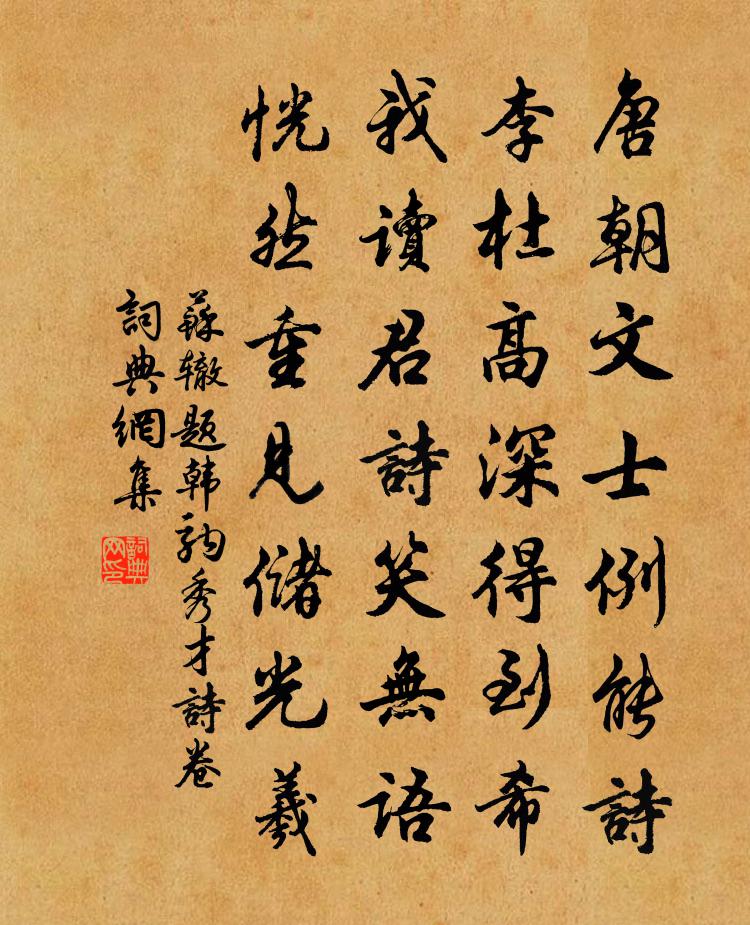 唐朝文士例能詩
李杜高深得到希
我讀君詩笑無語
恍然重見儲光羲
蘇辙题韩駒秀才詩卷
詞典網集
詞典
网印